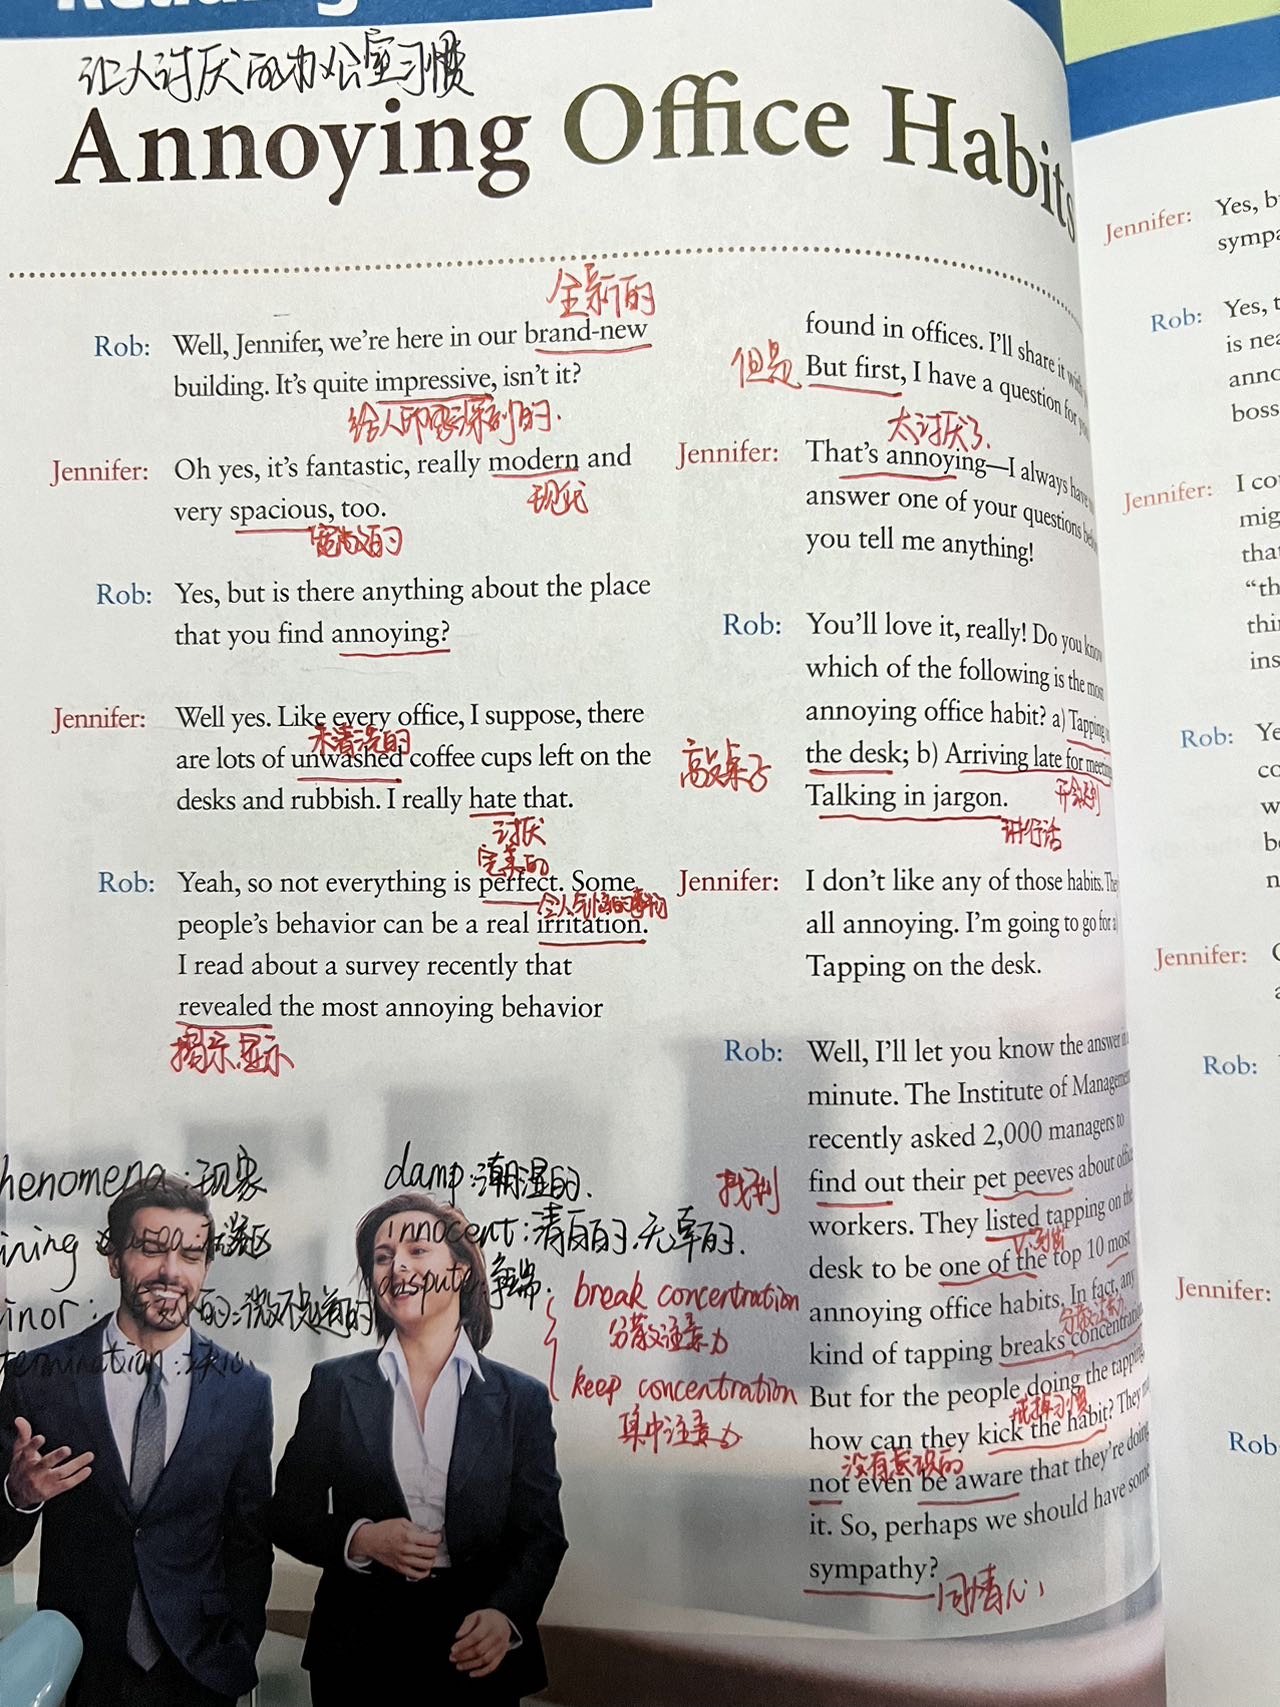 Reading
让人讨厌的办公室习惯
Annoying Office Habits
全新的
Rob: Well, Jennifer, we're here in our brand-new
building. It's quite impressive, isn't it?
给人印象深刻的.
Jennifer: Oh yes, it's fantastic, really modern and
现代
very spacious, too.
宽敞的
Rob: Yes, but is there anything about the place
that you find annoying?
Jennifer: Well yes. Like every office, I suppose, there
未清洗的
are lots of unwashed coffee cups left on the
desks and rubbish. I really hate that.
讨厌
完美的
Rob: Yeah, so not everything is perfect. Some
令人气恼的事物
people's behavior can be a real irritation.
I read about a survey recently that
revealed the most annoying behavior
揭示.显示
henomena:现象
damp:潮湿的.
innocent:清白的.无辜的.
dispute:争端.
break concentration
分散注意力
keep concentration
集中注意力
found in offices. I'll share it
但是 But first, I have a question for
太讨厌了.
Jennifer: That's annoying—I always have
answer one of your questions
you tell me anything!
Rob: You'll love it, really! Do you know
which of the following is the most
annoying office habit? a) Tapping
敲桌子 the desk; b) Arriving late for
开会迟到
Talking in jargon.
讲行话
Jennifer: I don't like any of those habits. They
all annoying. I'm going to go for a)
Tapping on the desk.
Rob: Well, I'll let you know the answer in
minute. The Institute of Management
recently asked 2,000 managers to
找到 find out their pet peeves about office
workers. They listed tapping on the
desk to be one of the top 10 most
annoying office habits. In fact, any
分散注意力
kind of tapping breaks concentration
But for the people doing the tapping
戒掉习惯
how can they kick the habit? They
没有意识的
not even be aware that they're doing
it. So, perhaps we should have some
sympathy?
同情心
Jennifer: Yes, b
sympa
Rob: Yes, t
is nea
anno
boss
Jennifer: I co
mig
that
"th
thi
ins
Rob: Ye
co
w
b
n
Jennifer:
a
Rob:
Jennifer:
Rob